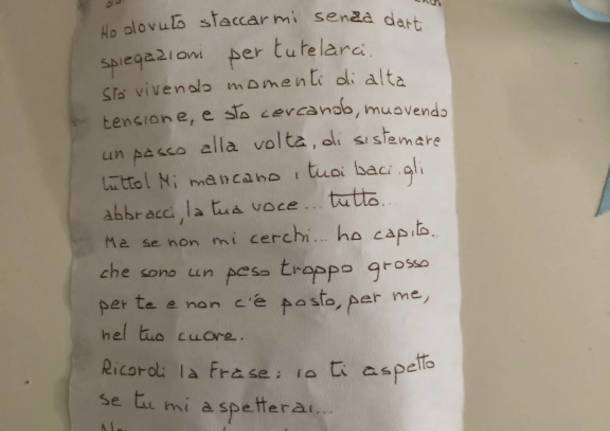 Ho dovuto staccarmi senza darti
spiegazioni per tutelarci.
sto vivendo momenti di alta
tensione, e sto cercando, muovendo
un passo alla volta, di sistemare
tutto! Mi mancano i tuoi baci gli
abbracci, la tua voce... tutto..
Ma se non mi cerchi... ho capito..
che sono un peso troppo grosso
per te e non c'è posto, per me,
nel tuo cuore.
Ricordi la Frase: io ti aspetto
se tu mi aspetterai...